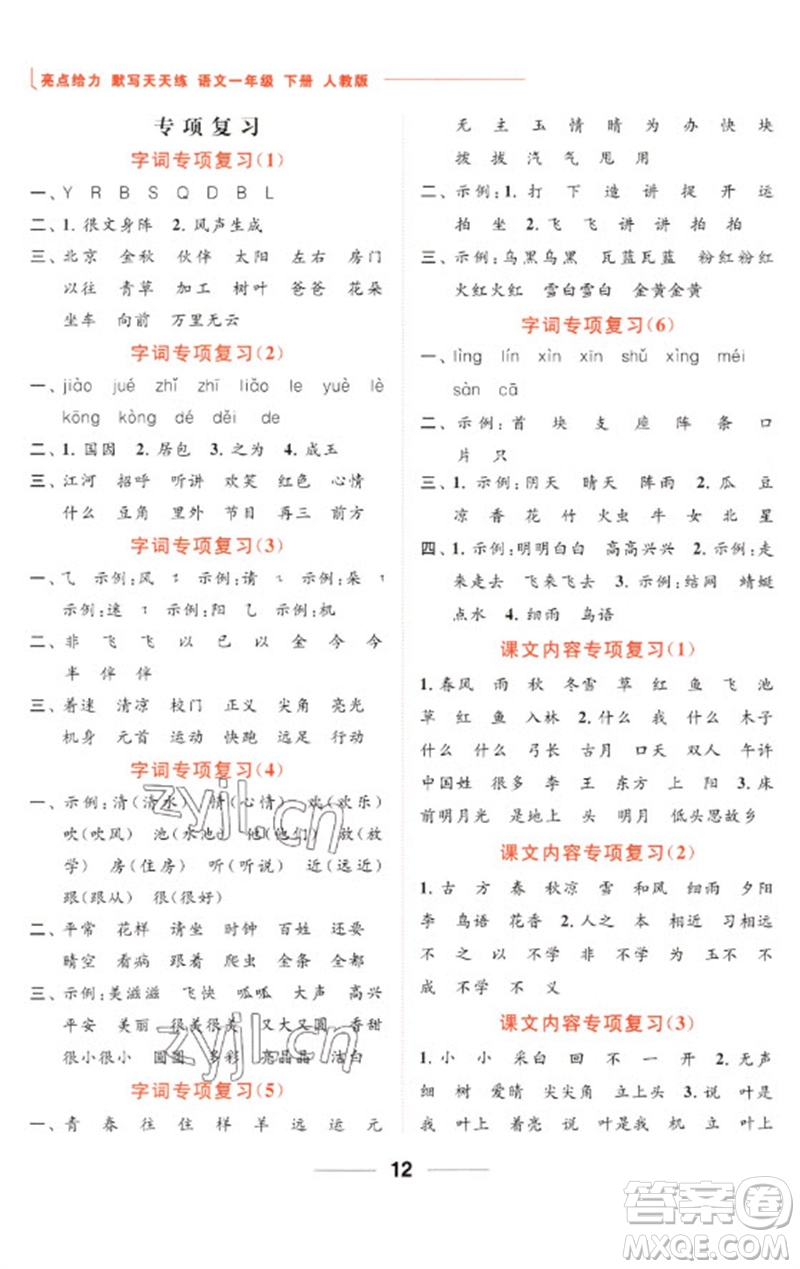 亮点给力 默写天天练 语文一年级 下册 人教版
专项复习
字词专项复习(1)
一、Y R B S Q D B L
二、1. 很文身阵 2. 风声生成
三、北京 金秋 伙伴 太阳 左右 房门
以往 青草 加工 树叶 爸爸 花朵
坐车 向前 万里无云
字词专项复习(2)
一、jiào jué zhǐ zhī liǎo le yuè lè
kōng kòng dé děi de
二、1. 国因 2. 居包 3. 之为 4. 成玉
三、江河 招呼 听讲 欢笑 红色 心情
什么 豆角 里外 节目 再三 前方
字词专项复习(3)
一、⺄ 示例:风 ㇊ 示例:请 ㇈ 示例:朵
示例:速 示例:阳 乚 示例:机
二、非 飞 飞 以 已 以 金 今 今
半 伴 伴
三、着速 清凉 校门 正义 尖角 亮光
机身 元首 运动 快跑 远足 行动
字词专项复习(4)
一、示例:清(清水) 情(心情) 欢(欢乐)
吹(吹风) 池(水池) 他(他们) 放(放
学) 房(住房) 听(听说) 近(远近)
跟(跟从) 很(很好)
二、平常 花样 请坐 时钟 百姓 还要
晴空 看病 跟着 爬虫 全条 全都
三、示例:美滋滋 飞快 呱呱 大声 高兴
平安 美丽 很美很美 又大又圆 香甜
很小很小 圆圆 多彩 亮晶晶 洁白
字词专项复习(5)
一、青 春 往 住 样 羊 远 运 元
无 主 玉 情 晴 为 办 快 块
拨 拔 汽 气 甩 用
二、示例:1. 打 下 造 讲 提 开 运
拍 坐 2. 飞 飞 讲 讲 拍 拍
三、示例:乌黑乌黑 瓦蓝瓦蓝 粉红粉红
火红火红 雪白雪白 金黄金黄
字词专项复习(6)
一、lìng lín xìn xīn shǔ xìng méi
sàn cā
二、示例:首 块 支 座 阵 条 口
片 只
三、1. 示例:阴天 晴天 阵雨 2. 瓜 豆
凉 香 花 竹 火虫 牛 女 北 星
四、1. 示例:明明白白 高高兴兴 2. 示例:走
来走去 飞来飞去 3. 示例:结网 蜻蜓
点水 4. 细雨 鸟语
课文内容专项复习(1)
1. 春风 雨 秋 冬雪 草 红 鱼 飞 池
草 红 鱼 入林 2. 什么 我 什么 木子
什么 什么 弓长 古月 口天 双人 午许
中国姓 很多 李 王 东方 上 阳 3. 床
前明月光 是地上 头 明月 低头思故乡
课文内容专项复习(2)
1. 古 方 春 秋凉 雪 和风 细雨 夕阳
李 鸟语 花香 2. 人之 本 相近 习相远
不 之 以 不学 非 不学 为 玉不 不
成 不学 不 义
课文内容专项复习(3)
1. 小 小 采白 回 不 一 开 2. 无声
细 树 爱晴 尖尖角 立上头 3. 说 叶是
我 叶上 着亮 叶是我 叶上 立 叶是
我 叶上 朵朵
12
zyjl.cn
zyjl.cn
答案圈
MXQE.COM